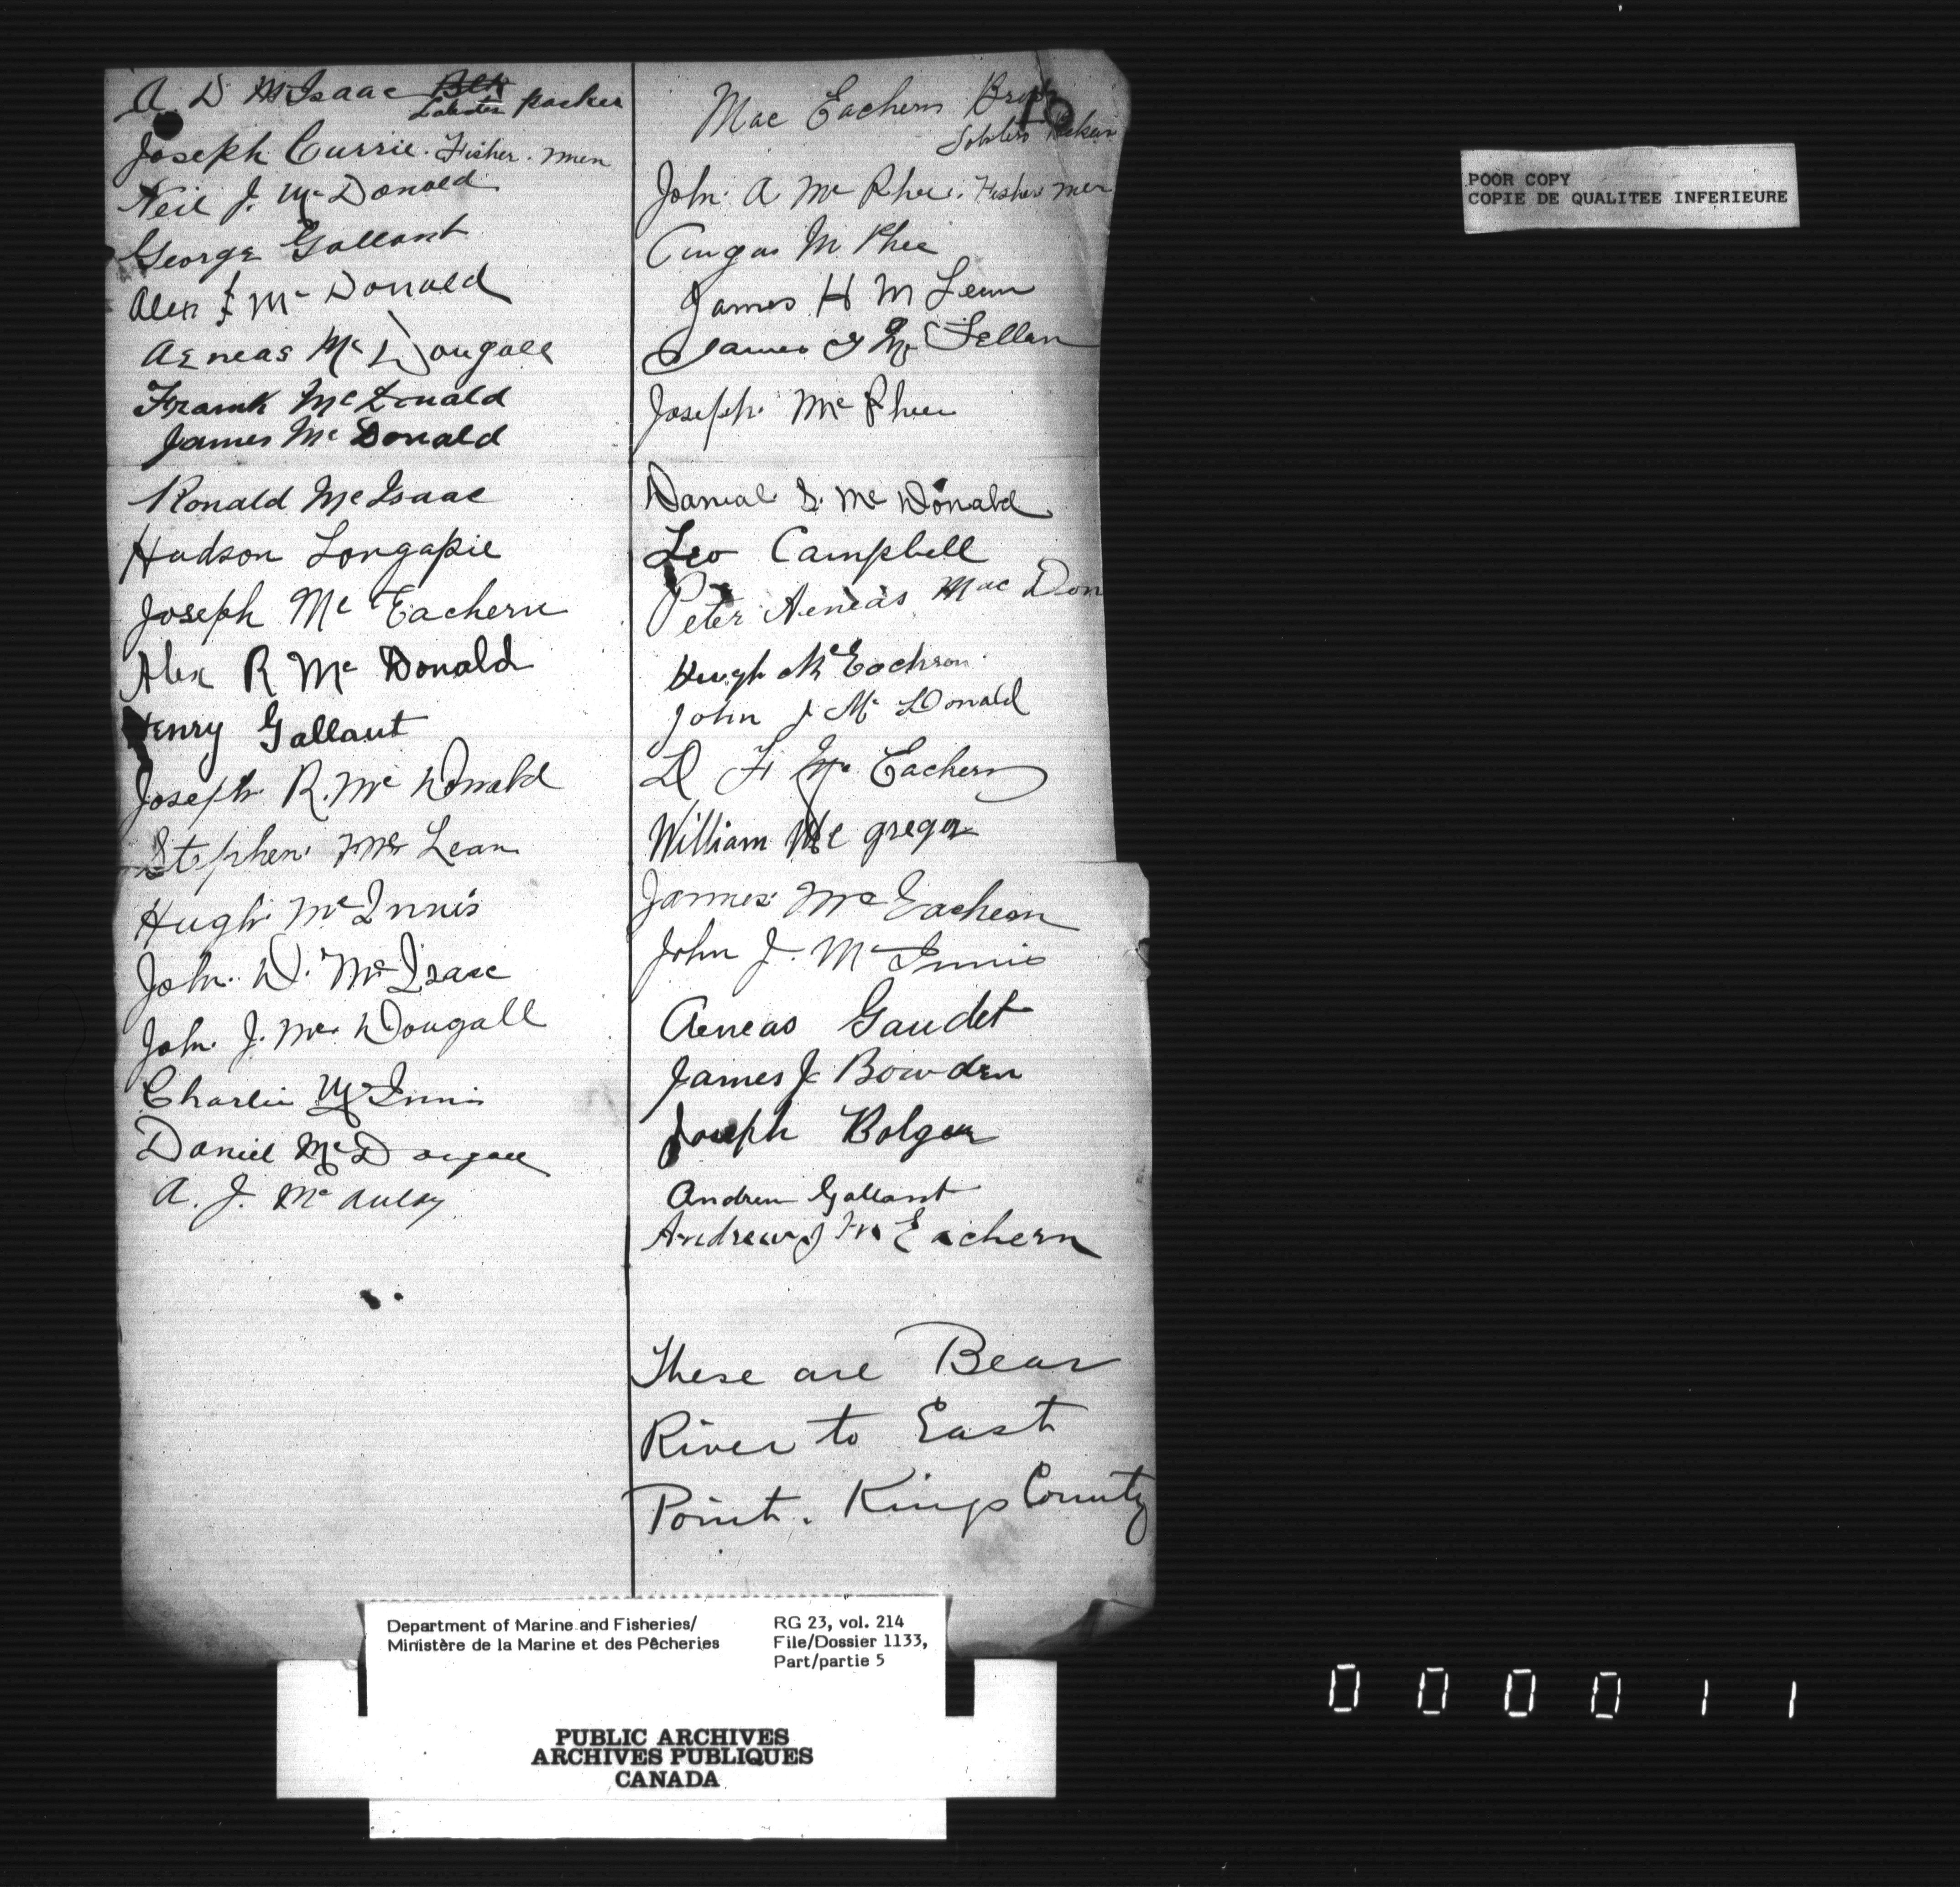 A. D McIsaac Lobster packer
Joseph Currie. Fisher. men
Neil J. McDonald
George Gallant
Alex J McDonald
Aeneas McDougall
Frank McDonald
James McDonald
Ronald McIsaac
Hudson Longapie
Joseph McEachern
Alex R McDonald
Henry Gallant
Joseph R. McDonald
Stephen McLean
Hugh McInnis
John. D. McIsaac
John. J. McDougall
Charlie McInnis
Daniel McDougall
A. J. McAulay
Mac Eachern Bros
10
Lobsters
John A McPhee. Fisher men
Angus McPhee
James H McLean
James J McLellan
Joseph McPhee
Danial S. McDonald
Leo Campbell
Peter Aeneas Mac Don
Hugh McEachron
John J McDonald
D F McEachern
William Mc gregor
James McEachern
John J. McInnis
Aeneas Gaudet
James J Bowden
Joseph Bolger
Andrew Gallant
Andrew J McEachern
These are Bear
River to East
Point. Kings County
POOR COPY
COPIE DE QUALITEE INFERIEURE
Department of Marine and Fisheries/
Ministère de la Marine et des Pêcheries
RG 23, vol. 214
File/Dossier 1133,
Part/partie 5
PUBLIC ARCHIVES
ARCHIVES PUBLIQUES
CANADA
000011